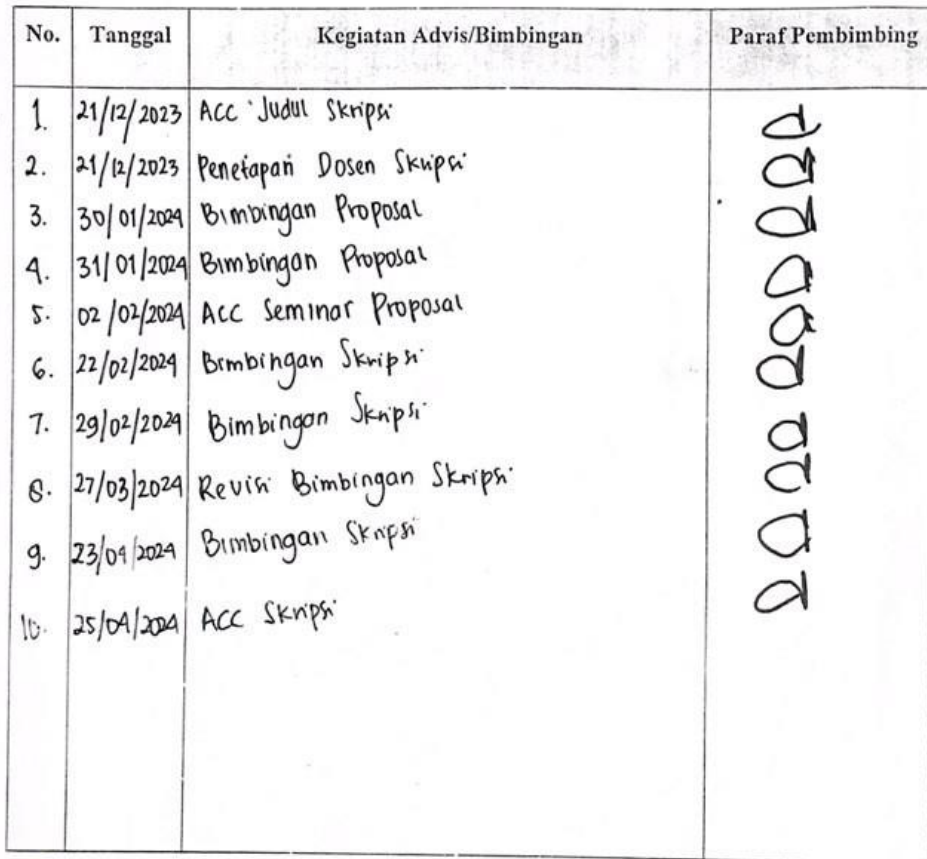 No. Tanggal Kegiatan Advis/Bimbingan Paraf Pembimbing
1. 21/12/2023 ACC Judul Skripsi
2. 21/12/2023 Penetapan Dosen Skripsi
3. 30/01/2024 Bimbingan Proposal
4. 31/01/2024 Bimbingan Proposal
5. 02/02/2024 ACC Seminar Proposal
6. 22/02/2024 Bimbingan Skripsi
7. 29/02/2024 Bimbingan Skripsi
8. 27/03/2024 Revisi Bimbingan Skripsi
9. 23/04/2024 Bimbingan Skripsi
10. 25/04/2024 ACC Skripsi